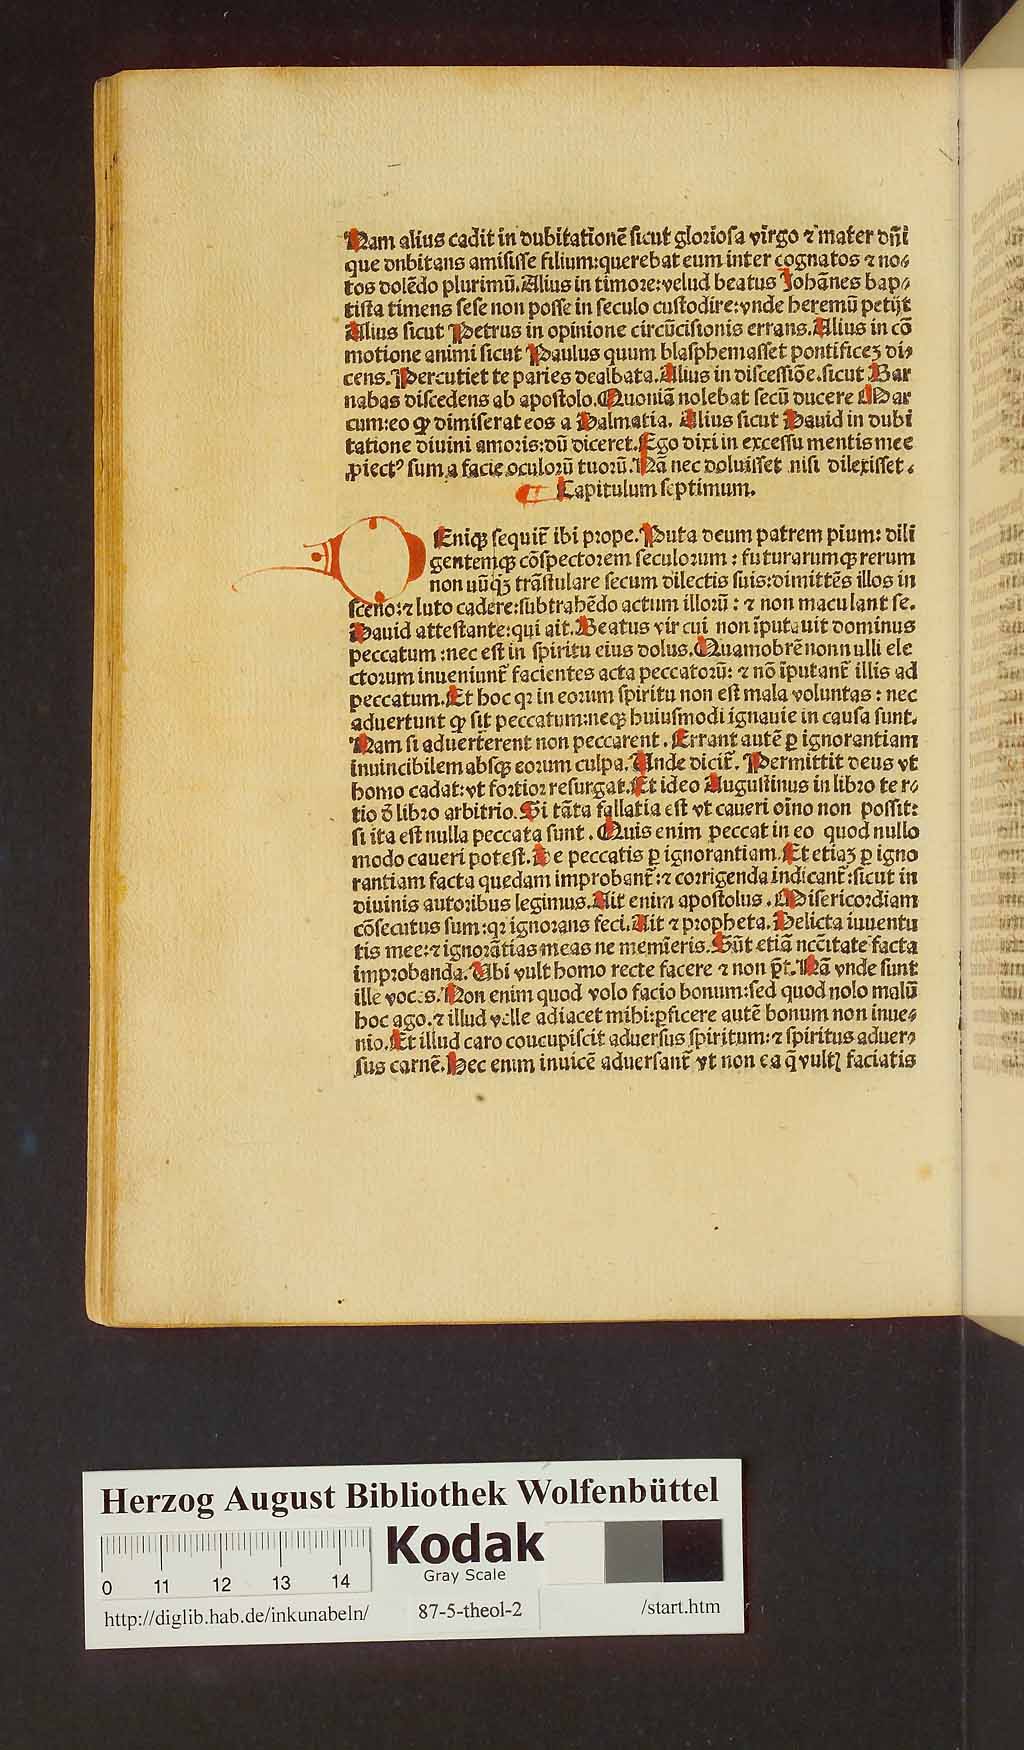 Nam alius cadit in dubitationē sicut gloriosa virgo ⁊ mater dn̄i
que dnbitans amisisse filium:querebat eum inter cognatos ⁊ no⸗
tos dolēdo plurimū.Alius in timore:velud beatus Johānes bap⸗
tista timens sese non posse in seculo custodire:vnde heremū petijt
Alius sicut Petrus in opinione circūcisionis errans.Alius in cō
motione animi sicut Paulus quum blasphemasset pontificeꝫ di⸗
cens.Percutiet te paries dealbata.Alius in discessiōe.sicut Bar
nabas discedens ab apostolo.Quoniā nolebat secū ducere Mar
cum:eo ꝙ dimiserat eos a Dalmatia. Alius sicut Dauid in dubi
tatione diuini amoris:dū diceret.Ego dixi in excessu mentis mee
ꝓiectꝰ sum a facie oculorū tuorū.Nā nec doluisset nisi dilexisset.
Capitulum septimum.
DEniqꝫ sequit̄ ibi prope.Puta deum patrem pium: dili
gentemqꝫ cōspectorem seculorum: futurarumqꝫ rerum
non uūqꝫ trāstulare secum dilectis suis:dimittēs illos in
sceno:⁊ luto cadere:subtrahēdo actum illorū: ⁊ non maculant se.
Dauid attestante:qui ait.Beatus vir cui non īputauit dominus
peccatum:nec est in spiritu eius dolus.Quamobrē nonnulli ele
ctorum inueniunt̄ facientes acta peccatorū: ⁊ nō īputant̄ illis ad
peccatum.Et hoc qꝛ in eorum spiritu non est mala voluntas: nec
aduertunt ꝙ sit peccatum:neqꝫ huiusmodi ignauie in causa sunt.
Nam si aduerterent non peccarent. Errant autē ꝑ ignorantiam
inuincibilem absqꝫ eorum culpa.Unde dicit̄. Permittit deus vt
homo cadat:vt fortior resurgat.Et ideo Augustinus in libro ter⸗
tio d̄ libro arbitrio.Si tāta fallatia est vt caueri oīno non possit:
si ita est nulla peccata sunt. Quis enim peccat in eo quod nullo
modo caueri potest.De peccatis ꝑ ignorantiam.Et etiaꝫ ꝑ igno
rantiam facta quedam improbant̄:⁊ corrigenda indicant̄:sicut in
diuinis autoribus legimus.Ait enim apostolus.Misericordiam
cōsecutus sum:qꝛ ignorans feci.Ait ⁊ propheta.Delicta iuuentu
tis mee:⁊ ignorātias meas ne memīeris.Sūt etiā nc̄citate facta
improbanda.Ubi vult homo recte facere ⁊ non p̄t.Nā vnde sunt
ille voces.Non enim quod volo facio bonum:sed quod nolo malū
hoc ago.⁊ illud velle adiacet mihi:ꝑficere autē bonum non inue⸗
nio.Et illud caro coucupiscit aduersus spiritum:⁊ spiritus aduer⸗
sus carnē.Hec enim inuicē aduersant̄ vt non ea q̄ vultꝭ faciatis
Herzog August Bibliothek Wolfenbüttel
Kodak
Gray Scale
0 11 12 13 14
http://diglib.hab.de/inkunabeln/ 87-5-theol-2 /start.htm